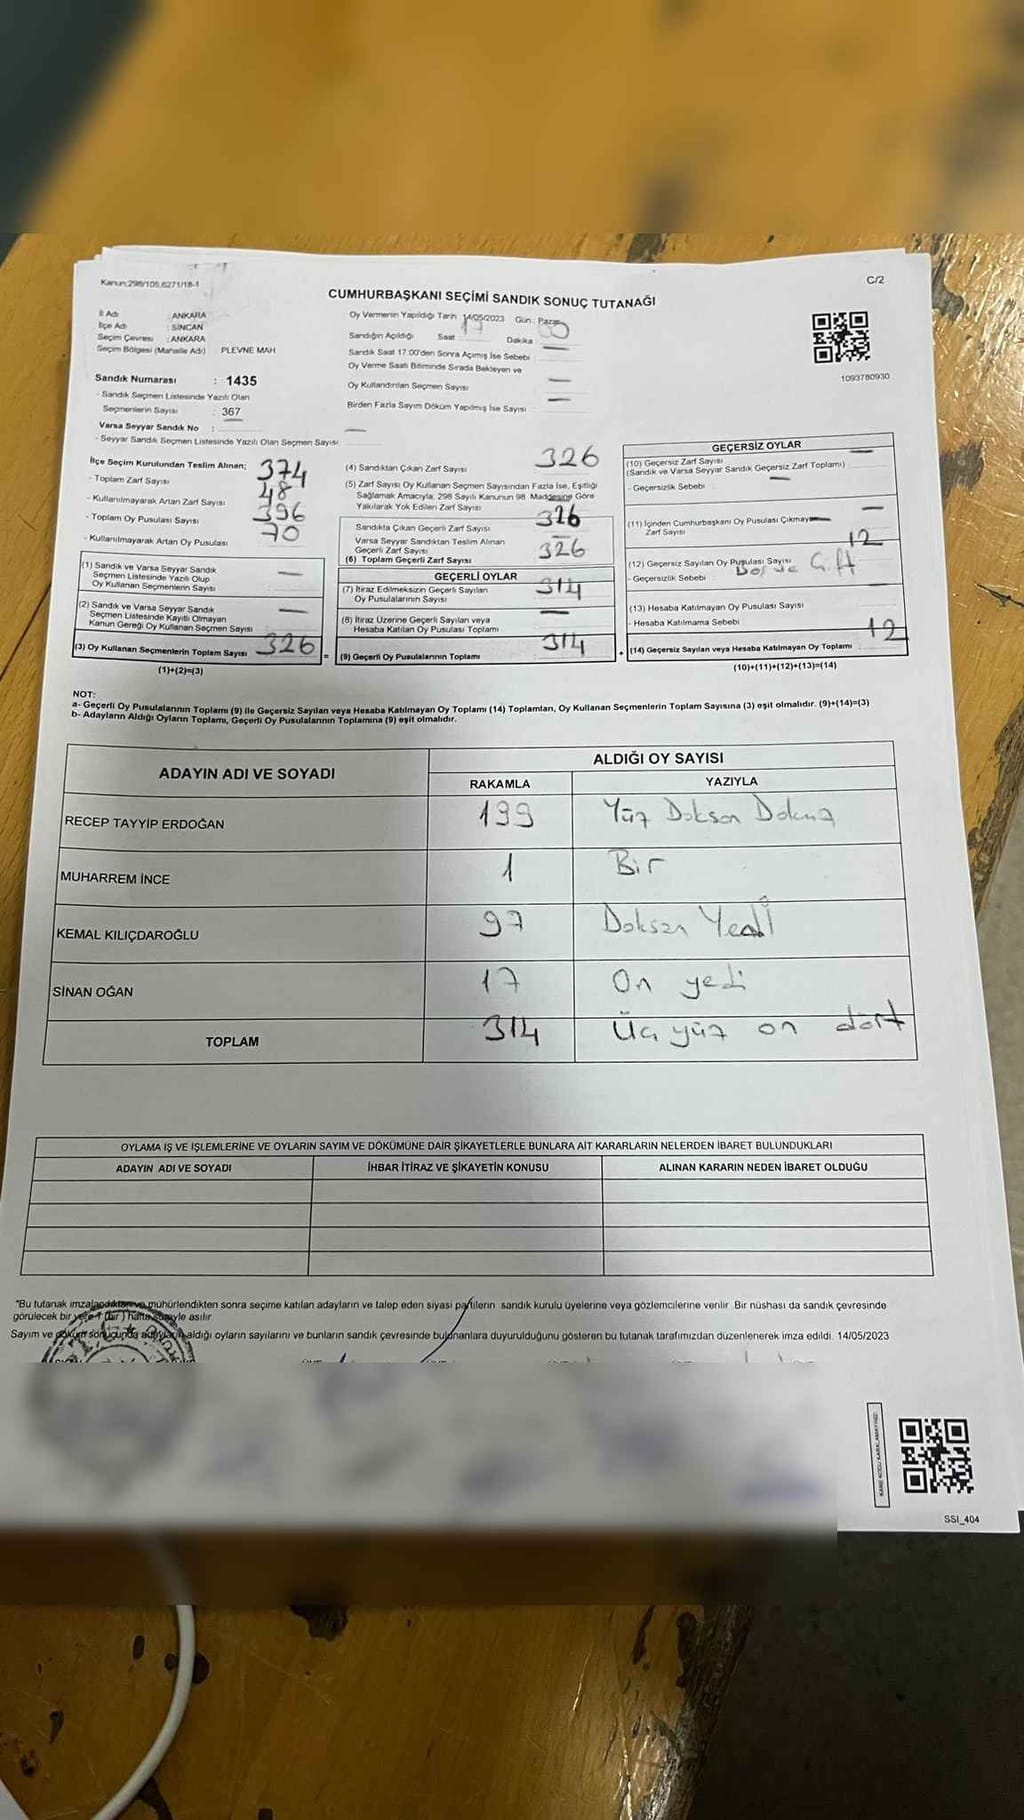 Kanun:298/105,6271/18-1
C/2
CUMHURBAŞKANI SEÇİMİ SANDIK SONUÇ TUTANAĞI
İl Adı : ANKARA
İlçe Adı : SİNCAN
Seçim Çevresi : ANKARA
Seçim Bölgesi (Mahalle Adı) : PLEVNE MAH
Sandık Numarası : 1435
- Sandık Seçmen Listesinde Yazılı Olan
Seçmenlerin Sayısı : 367
Varsa Seyyar Sandık No : —
- Seyyar Sandık Seçmen Listesinde Yazılı Olan Seçmen Sayısı —
Oy Vermenin Yapıldığı Tarih : 14/05/2023 Gün : Pazar
Sandığın Açıldığı Saat Dakika
Sandık Saat 17.00'den Sonra Açımış İse Sebebi —
Oy Verme Saati Bitiminde Sırada Bekleyen ve
Oy Kullandırılan Seçmen Sayısı —
Birden Fazla Sayım Döküm Yapılmış İse Sayısı —
1093780930
İlçe Seçim Kurulundan Teslim Alınan;
- Toplam Zarf Sayısı 374
- Kullanılmayarak Artan Zarf Sayısı 48
- Toplam Oy Pusulası Sayısı 396
- Kullanılmayarak Artan Oy Pusulası 70
(1) Sandık ve Varsa Seyyar Sandık
Seçmen Listesinde Yazılı Olup
Oy Kullanan Seçmenlerin Sayısı —
(2) Sandık ve Varsa Seyyar Sandık
Seçmen Listesinde Kayıtlı Olmayan
Kanun Gereği Oy Kullanan Seçmen Sayısı —
(3) Oy Kullanan Seçmenlerin Toplam Sayısı 326
(1)+(2)=(3)
(4) Sandıktan Çıkan Zarf Sayısı 326
(5) Zarf Sayısı Oy Kullanan Seçmen Sayısından Fazla İse, Eşitliği
Sağlamak Amacıyla, 298 Sayılı Kanunun 98. Maddesine Göre
Yakılarak Yok Edilen Zarf Sayısı —
Sandıkta Çıkan Geçerli Zarf Sayısı 326
Varsa Seyyar Sandıktan Teslim Alınan
Geçerli Zarf Sayısı —
(6) Toplam Geçerli Zarf Sayısı 326
GEÇERLİ OYLAR
(7) İtiraz Edilmeksizin Geçerli Sayılan
Oy Pusulalarının Sayısı 314
(8) İtiraz Üzerine Geçerli Sayılan veya
Hesaba Katılan Oy Pusulası Toplamı —
= (9) Geçerli Oy Pusulalarının Toplamı 314
GEÇERSİZ OYLAR
(10) Geçersiz Zarf Sayısı —
(Sandık ve Varsa Seyyar Sandık Geçersiz Zarf Toplamı)
- Geçersizlik Sebebi —
(11) İçinden Cumhurbaşkanı Oy Pusulası Çıkmayan
Zarf Sayısı —
(12) Geçersiz Sayılan Oy Pusulası Sayısı 12
- Geçersizlik Sebebi Boş ve Çift
(13) Hesaba Katılmayan Oy Pusulası Sayısı —
- Hesaba Katılmama Sebebi
+ (14) Geçersiz Sayılan veya Hesaba Katılmayan Oy Toplamı 12
(10)+(11)+(12)+(13)=(14)
NOT:
a- Geçerli Oy Pusulalarının Toplamı (9) ile Geçersiz Sayılan veya Hesaba Katılmayan Oy Toplamı (14) Toplamları, Oy Kullanan Seçmenlerin Toplam Sayısına (3) eşit olmalıdır. (9)+(14)=(3)
b- Adayların Aldığı Oyların Toplamı, Geçerli Oy Pusulalarının Toplamına (9) eşit olmalıdır.
ADAYIN ADI VE SOYADI
ALDIĞI OY SAYISI
RAKAMLA YAZIYLA
RECEP TAYYİP ERDOĞAN 199 Yüz Doksan Dokuz
MUHARREM İNCE 1 Bir
KEMAL KILIÇDAROĞLU 97 Doksan Yedi
SİNAN OĞAN 17 On yedi
TOPLAM 314 Üç yüz on dört
OYLAMA İŞ VE İŞLEMLERİNE VE OYLARIN SAYIM VE DÖKÜMÜNE DAİR ŞİKAYETLERLE BUNLARA AİT KARARLARIN NELERDEN İBARET BULUNDUKLARI
ADAYIN ADI VE SOYADI İHBAR İTİRAZ VE ŞİKAYETİN KONUSU ALINAN KARARIN NEDEN İBARET OLDUĞU
*Bu tutanak imzalandıktan ve mühürlendikten sonra seçime katılan adayların ve talep eden siyasi partilerin sandık kurulu üyelerine veya gözlemcilerine verilir. Bir nüshası da sandık çevresinde
görülecek bir yere 1 (bir) hafta süreyle asılır.
Sayım ve döküm sonucunda adayların aldığı oyların sayılarını ve bunların sandık çevresinde bulunanlara duyurulduğunu gösteren bu tutanak tarafımızdan düzenlenerek imza edildi. 14/05/2023
SSI_404